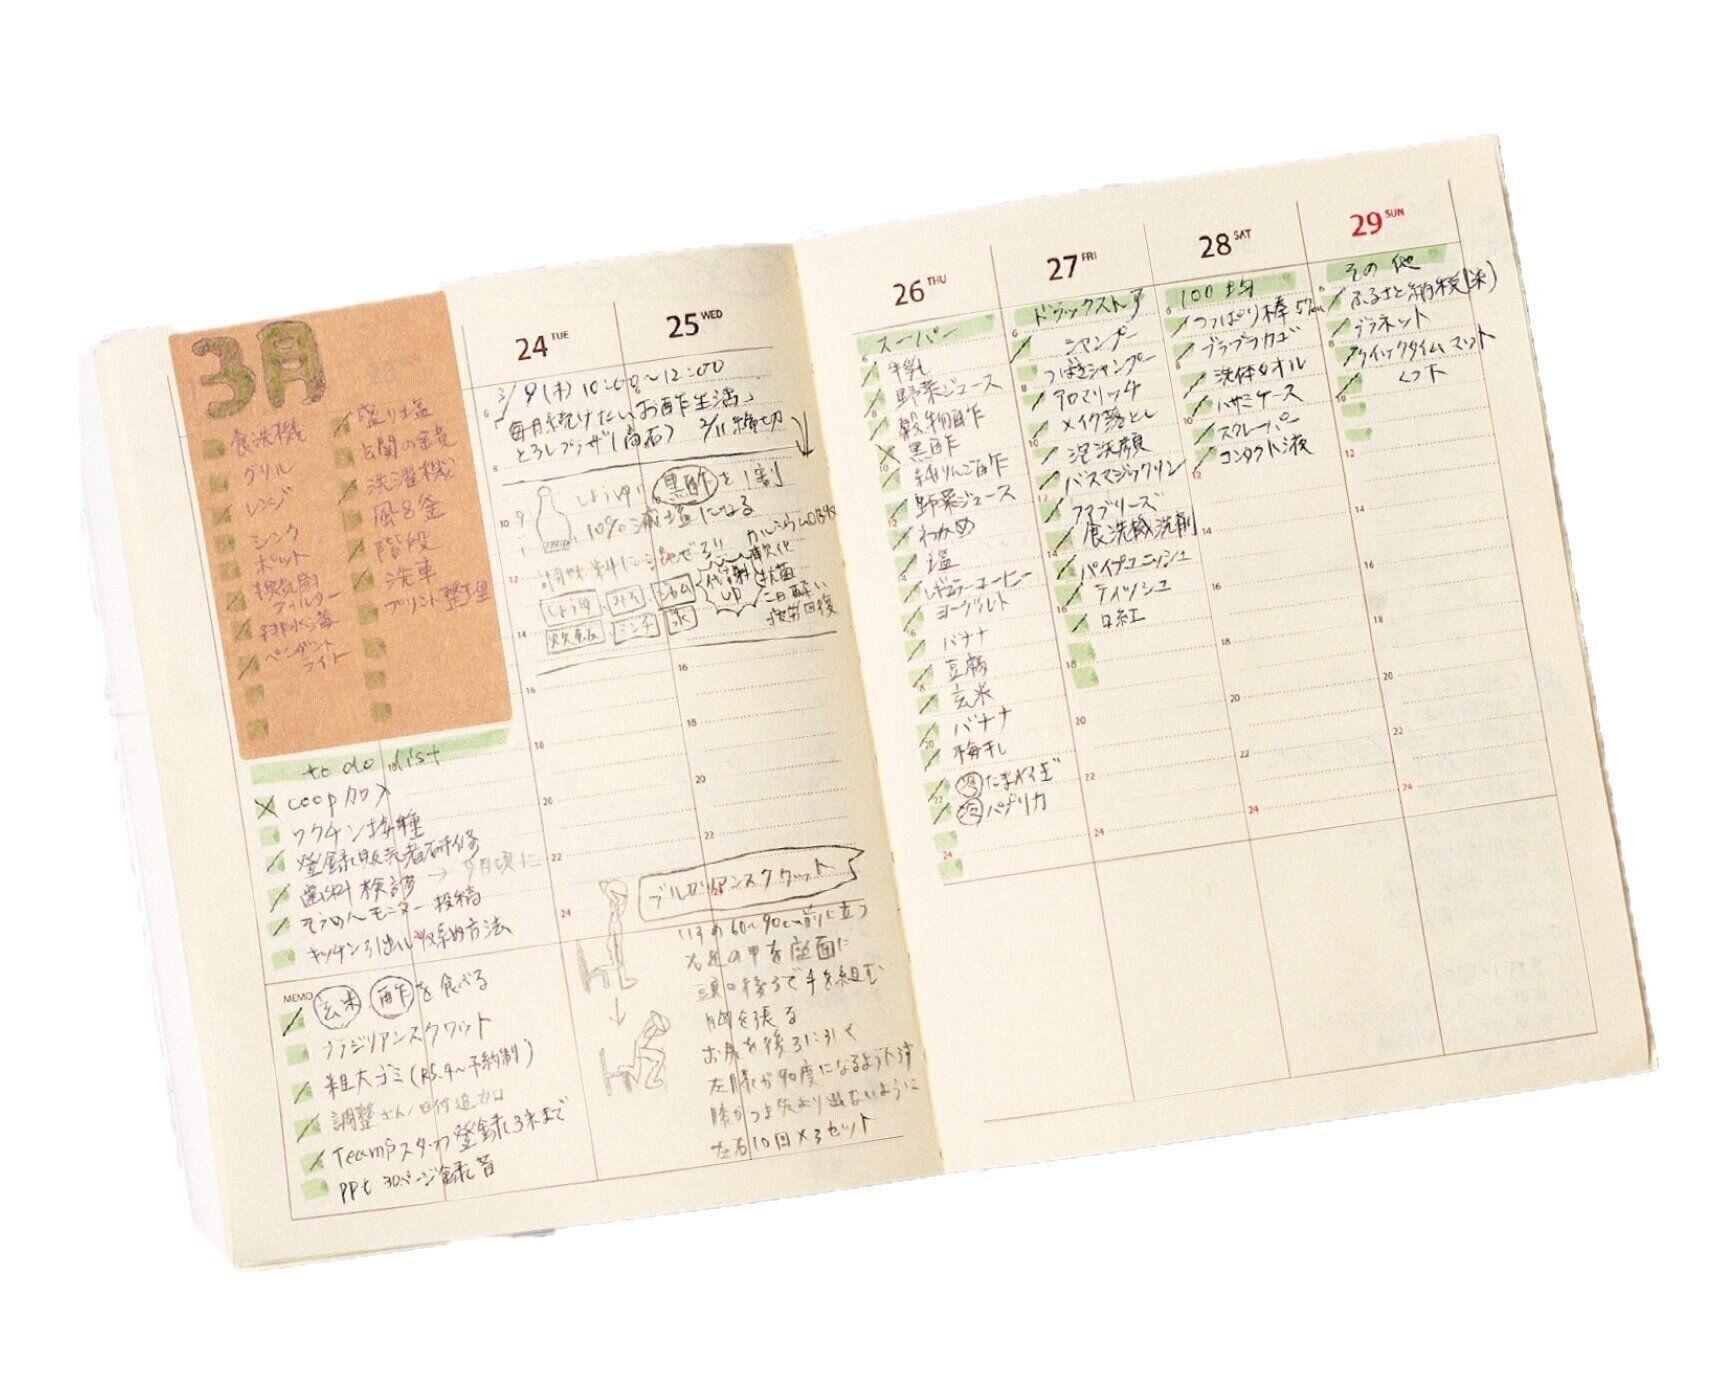 3月
食洗機
グリル
レンジ
シンク
ポット
換気扇
フィルター
排水溝
ペンダント
ライト
盛り塩
玄関の鏡
洗濯機
風呂釜
階段
洗車
プリント整理
to do list
coop加入
ワクチン接種
登録販売者研修
歯科検診 → 9月頃に
そうめんモニター投稿
キッチン引出し収納方法
MEMO
玄米 酢を食べる
ブラジリアンスクワット
粗大ゴミ(R5.4〜予約制)
調整さん/日付追加
Teamsスタッフ登録 3末まで
ppt 30ページ録音
24 TUE
25 WED
3/9(木) 10:00〜12:00
毎月続けたいお酢生活
とろしプラザ(高石) 2/11締切
しょうゆり 黒酢を1割
10%減塩になる
調味料に混ぜろ!!
しょうゆ みそ
炊飯
代謝
UP
軟化
抗菌
二日酔い
疲労回復
ブルガリアンスクワット
いすの60〜90cm前に立つ
右足の甲を座面に
頭の後ろで手を組む
胸を張る
お尻を後ろに引く
左膝が90度になるよう下ろす
膝がつま先より出ないように
左右10回×3セット
26 THU
スーパー
牛乳
野菜ジュース
穀物酢
黒酢
純りんご酢
野菜ジュース
わかめ
塩
レギュラーコーヒー
ヨーグルト
バナナ
豆腐
玄米
バナナ
梅干し
たまねぎ
パプリカ
27 FRI
ドラックストア
シャンプー
つばきシャンプー
アロマリッチ
メイク落とし
泡洗顔
バスマジックリン
ファブリーズ
食洗機洗剤
パイプユニッシュ
ティッシュ
口紅
28 SAT
100均
つっぱり棒 57cm
プラプラカゴ
洗体タオル
ハサミケース
スクレーパー
コンタクト液
29 SUN
その他
ふるさと納税(米)
プラネット
クイックタイムマット
くつ下